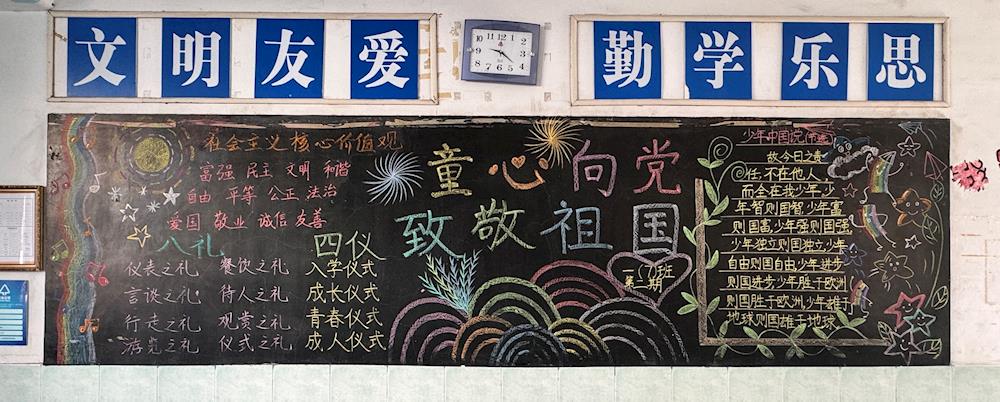 文明友爱
勤学乐思
社会主义核心价值观
富强 民主 文明 和谐
自由 平等 公正 法治
爱国 敬业 诚信 友善
八礼
仪表之礼 餐饮之礼
言谈之礼 待人之礼
行走之礼 观赏之礼
游览之礼 仪式之礼
四仪
入学仪式
成长仪式
青春仪式
成人仪式
童心向党
致敬祖国
一(7)班
第二期
少年中国说(节选)
故今日之责
任,不在他人,
而全在我少年,少
年智则国智,少年富
则国富,少年强则国强,
少年独立则国独立,少年
自由则国自由,少年进步
则国进步,少年胜于欧洲
则国胜于欧洲,少年雄于
地球则国雄于地球
12
1
2
3
4
5
6
7
8
9
10
11